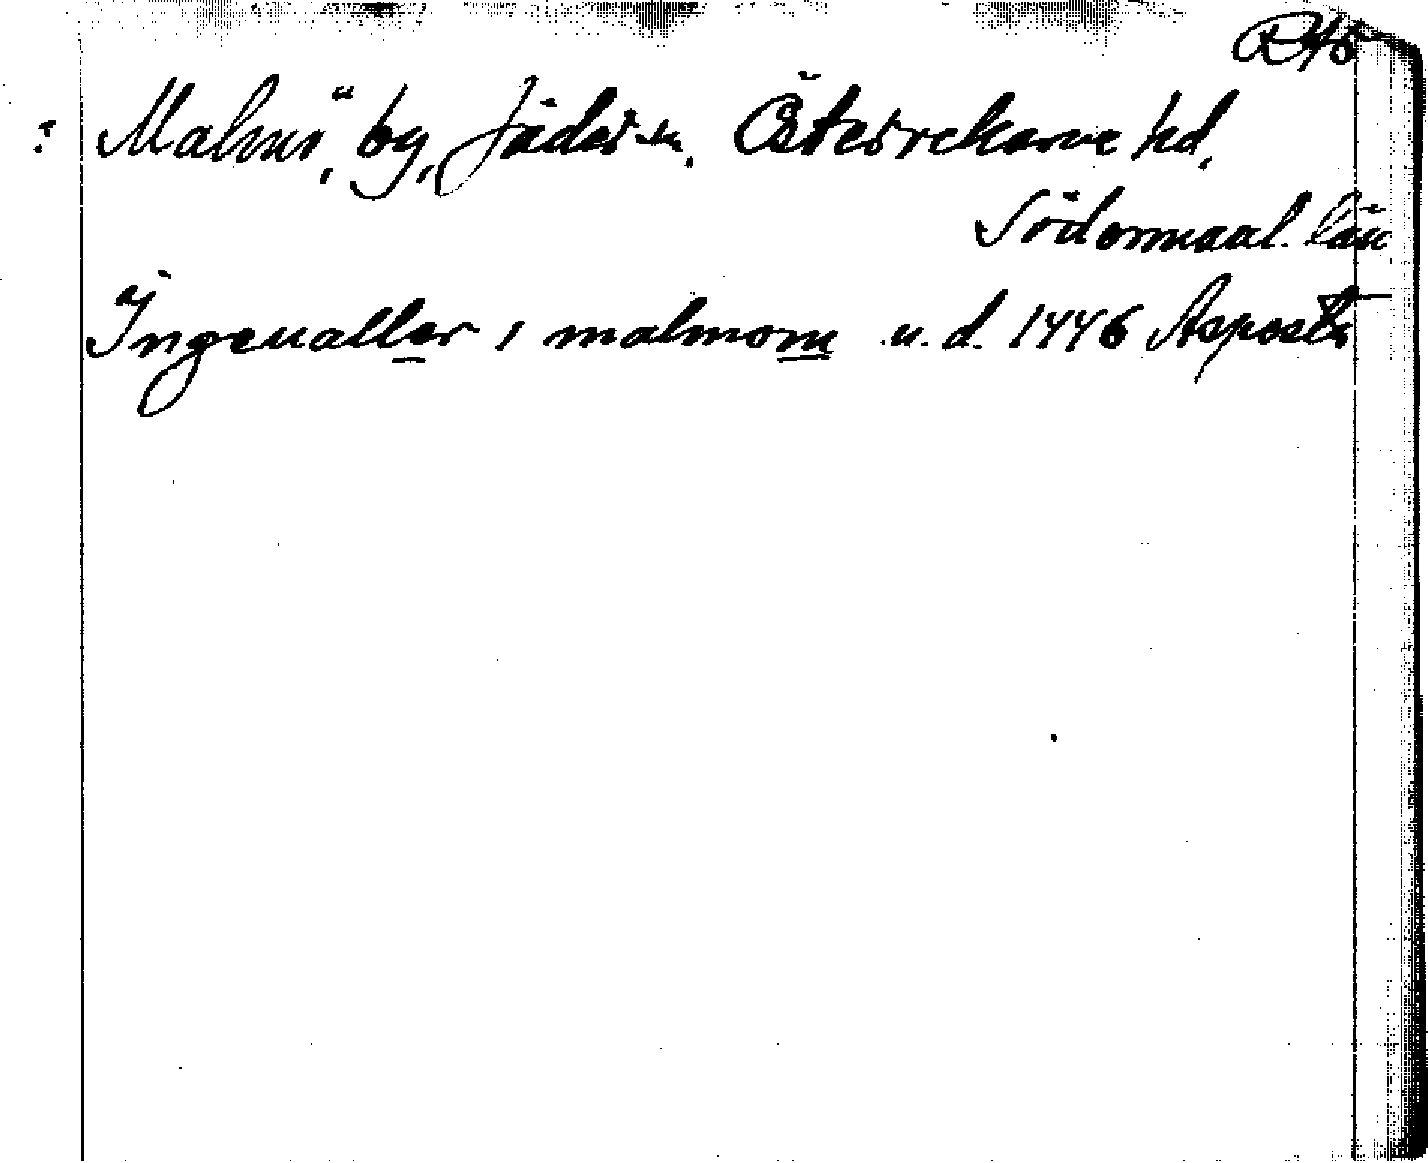 R45
: Malmö, by, Jäders sn. Österrekarne hd,
Södermanl. län
Ingeualler i malmom u. d. 1446 Asposta